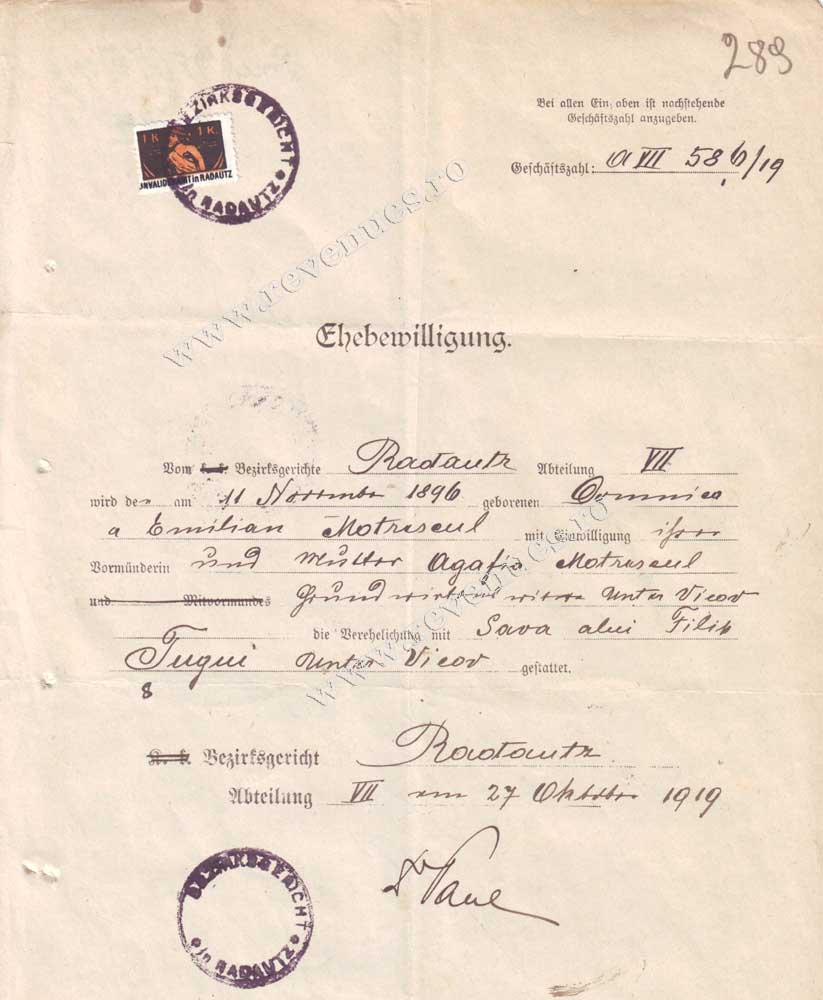 289
Bei allen Eingaben ist nachstehende
Geschäftszahl anzugeben.
Geschäftszahl: A VII 586/19
1K 1K
INVALIDENAMT in RADAUTZ
BEZIRKSGERICHT
in RADAUTZ
www.revenues.ro
Ehebewilligung.
Vom k. k. Bezirksgerichte Radautz Abteilung VII
wird der am 11 November 1896 geborenen Domnica
a Emilian Motrescul mit Einwilligung ihrer
Vormünderin und Mutter Agafia Motrescul
und Mitvormundes Grundwirtins witwe Unter Vicov
die Verehelichung mit Sava alui Filip
Tugui Unter Vicov gestattet.
8
www.revenues.ro
K. k. Bezirksgericht Radautz
Abteilung VII am 27 Oktober 1919
BEZIRKSGERICHT
in RADAUTZ